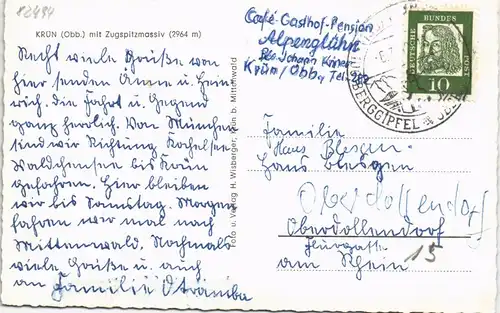 82494
KRÜN (Obb.) mit Zugspitzmassiv (2964 m)
Recht viele Grüße von
hier senden Annn u. Hein
rich, die Fahrt u. Gegend
ganz herlich. Von München
sind wir Richtung Kochelsee
Waldchensee bis Krün
gefahren. Hier bleiben
wir bis Samstag. Morgen
fahren wir mal nach
Mittenwald. Nochmals
viele Grüße u. auch
an Familie Otramba
Foto u. Verlag H. Wisberger, Krün b. Mittenwald
Café-Gasthof-Pension
Alpenglühn
Bes. Johann Kriner
Krün/Obb. Tel.
DEUTSCHE BUNDES POST
10
GIPFEL
Familie
Hans Blesgen
Hans Blesgen
Oberdollendorf
Oberdollendorf
15
am Rhein